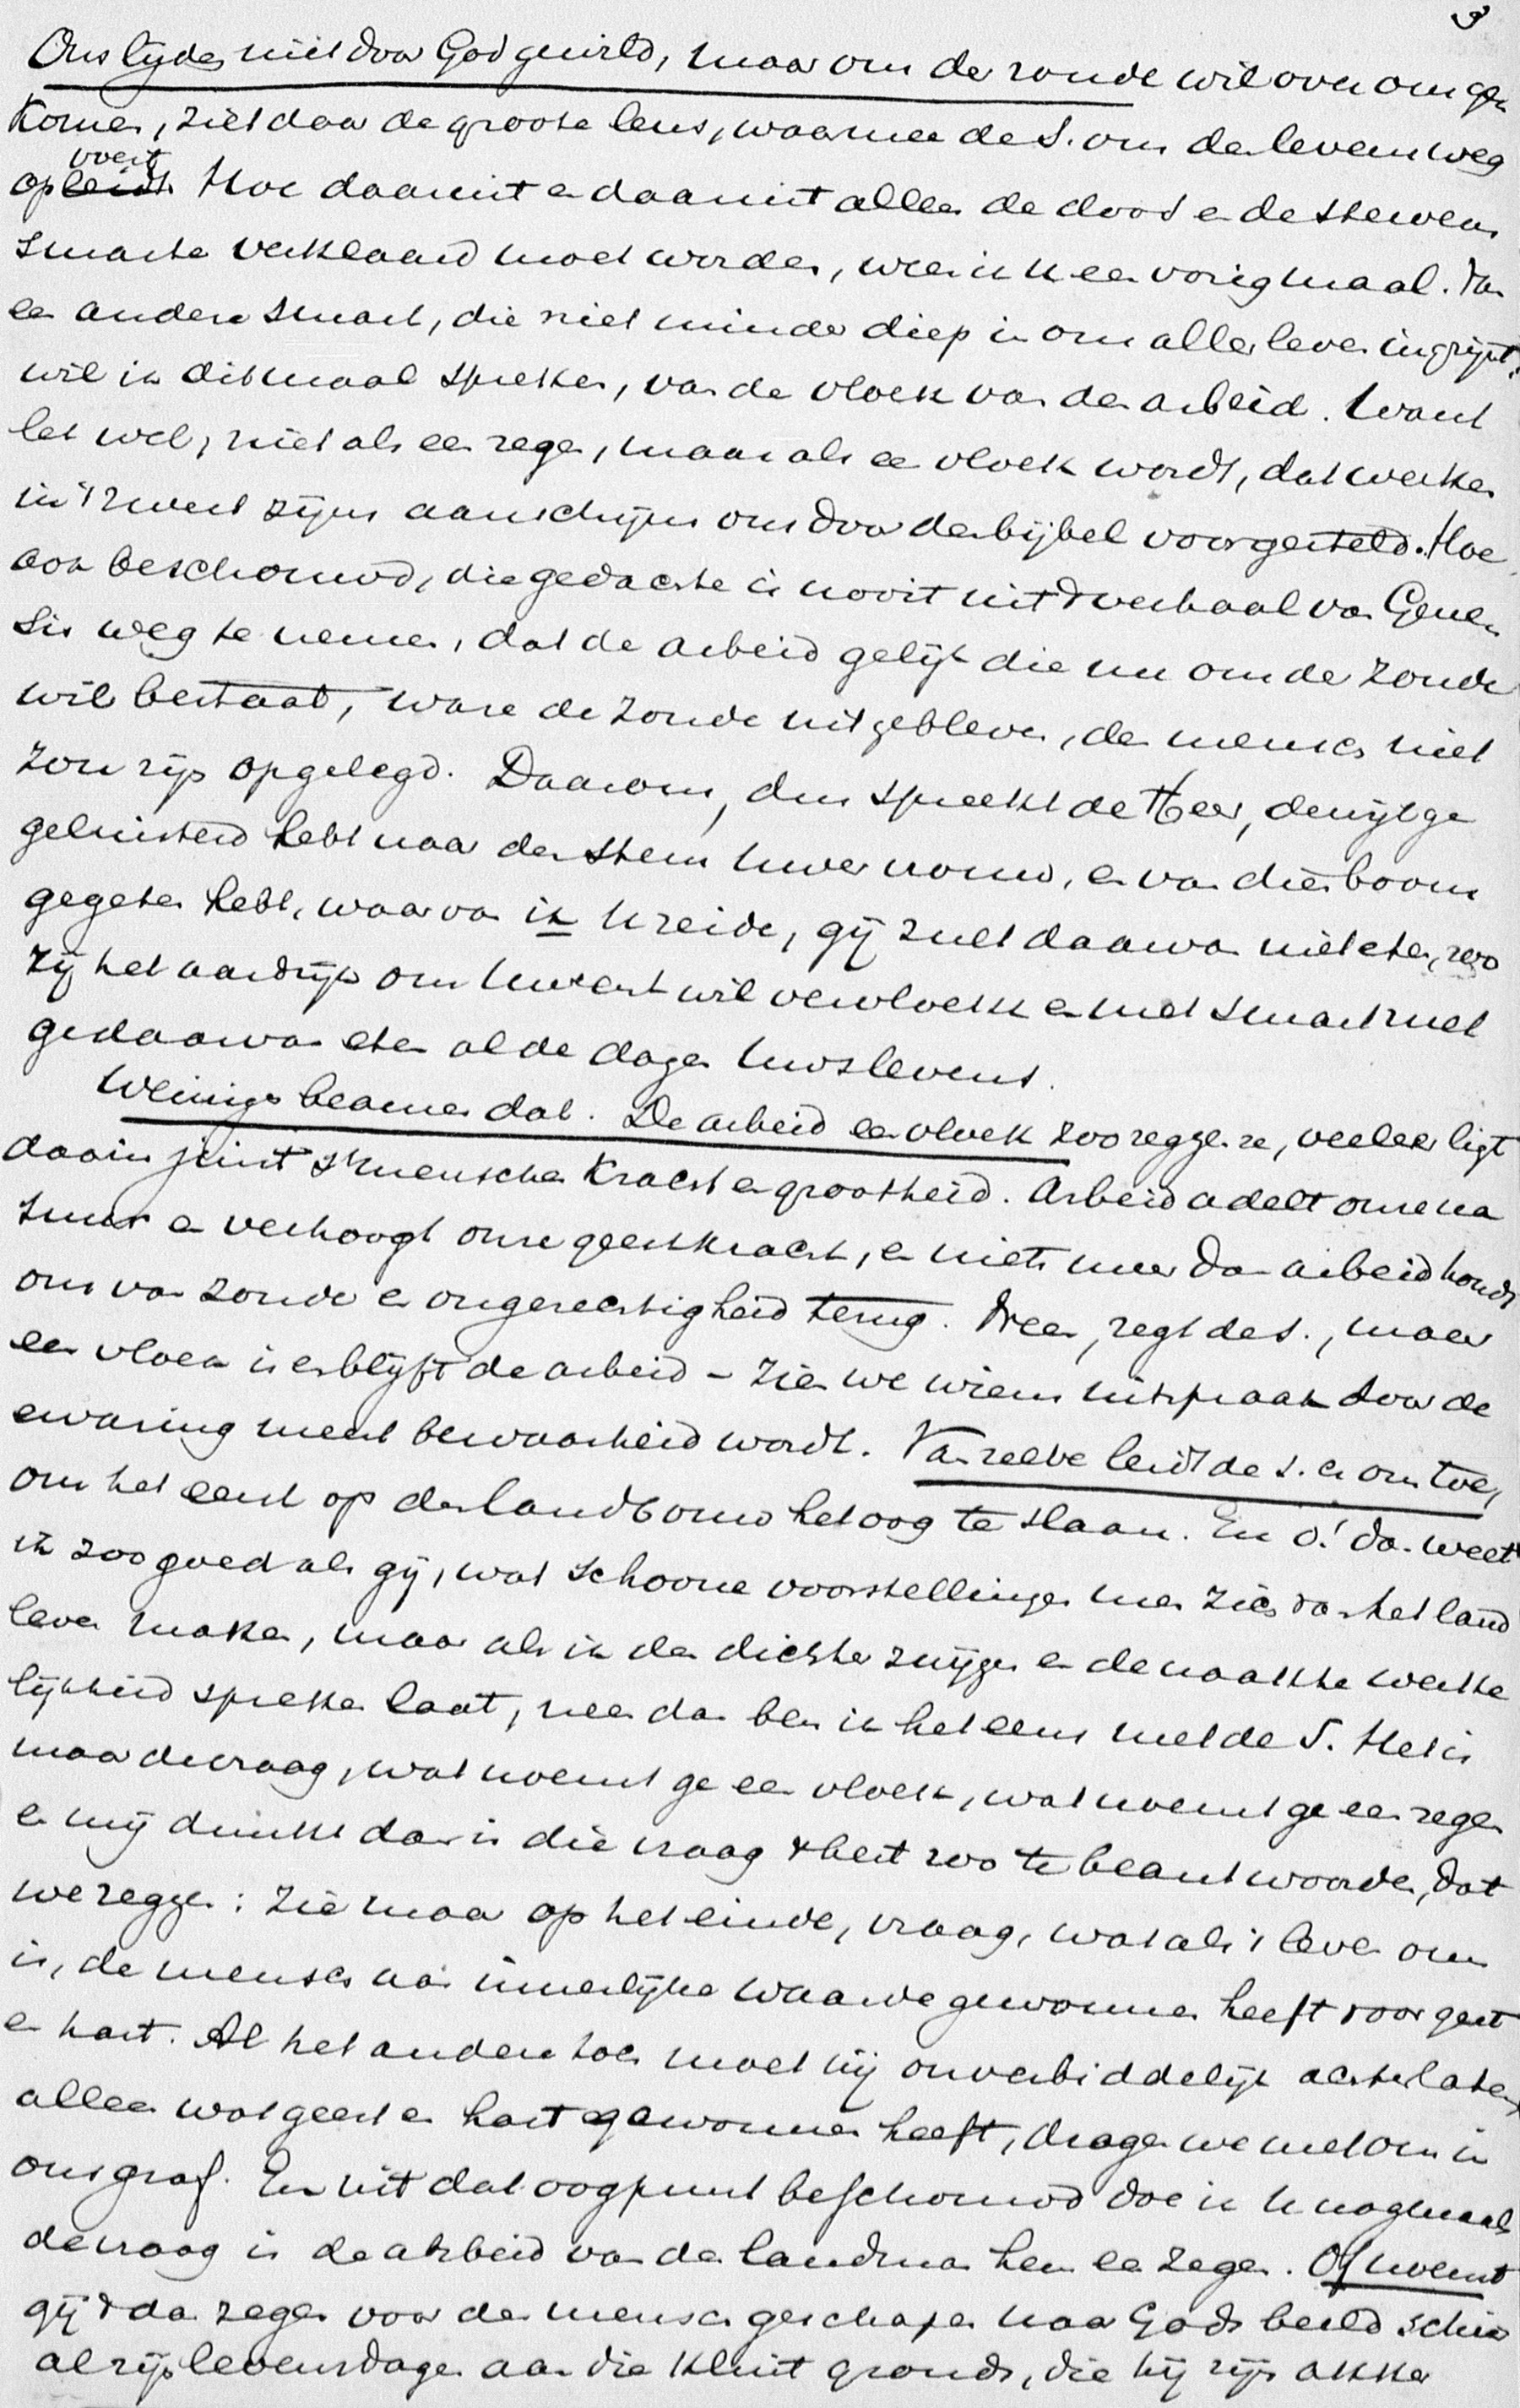 3
Ons lijden niet door God gewild, maar om de zonde wil over ons ge
komen, ziet daar de groote lens, waarmee de S. ons den levensweg
op leidt voert Hoe daaruit en daaruit alleen de dood en de stervens
smarte verklaard moet worden, wees ik u een vorig maal. Van
een andere smart, die niet minder diep in ons aller leven ingrijpt,
wil ik ditmaal spreken, van de vloek van den arbeid. Want
let wel, niet als een zegen, maar als een vloek wordt, dat werken
in 't zweet zijns aanschijns ons door den bijbel voorgesteld. Hoe
ook beschouwd, die gedachte is nooit uit 't verhaal van Gene
sis weg te nemen, dat de arbeid gelijk die nu om de zonde
wil bestaat, ware de zonde uitgebleven, den mensch niet
zou zijn opgelegd. Daarom, dus spreekt de Heer, dewijl ge
geluisterd hebt naar de stem uwer vrouw, en van dien boom
gegeten hebt, waarvan ik U zeide, gij zult daarvan niet eten, zoo
zij het aardrijk om uwent wil vervloekt en met smart zult
ge daarvan eten al de dagen uws levens.
Weinigen beamen dat. De arbeid een vloek zoo zeggen ze, veeleer ligt
daarin juist 's menschen kracht en grootheid. Arbeid adelt onze na
tuur en verhoogt onze geestkracht, en niets meer dan arbeid houdt
ons van zonde en ongerechtigheid terug. Neen, zegt de S., maar
een vloek is en blijft de arbeid – Zien we wiens uitspraak door de
ervaring meest bewaarheid wordt. Van zelve leidt de S. er ons toe,
om het eerst op den landbouw het oog te slaan. En o! dan weet
ik zoo goed als gij, wat schoone voorstellingen men zich van het land
leven maken, maar als ik den dichter zwijgen en de naakte werke
lijkheid spreken laat, neen dan ben ik het eens met de S. Het is
maar de vraag, wat noemt ge een vloek, wat noemt ge een zegen
en mij dunkt dan is die vraag 't best zoo te beantwoorden, dat
we zeggen: Zie maar op het einde, vraag, wat als 't leven om
is, de mensch aan innerlijke waarde gewonnen heeft voor geest
en hart. Al het andere toch moet hij onverbiddelijk achterlaten,
alleen wat geest en hart gewonnen heeft, dragen we met ons in
ons graf. En uit dat oogpunt beschouwd doe ik U nogmaals
de vraag is de arbeid van den landman hem een zegen. Of noemt
gij 't dan zegen voor den mensch geschapen naar Gods beeld schier
al zijn levensdagen aan die kluit gronds, die hij zijn akker